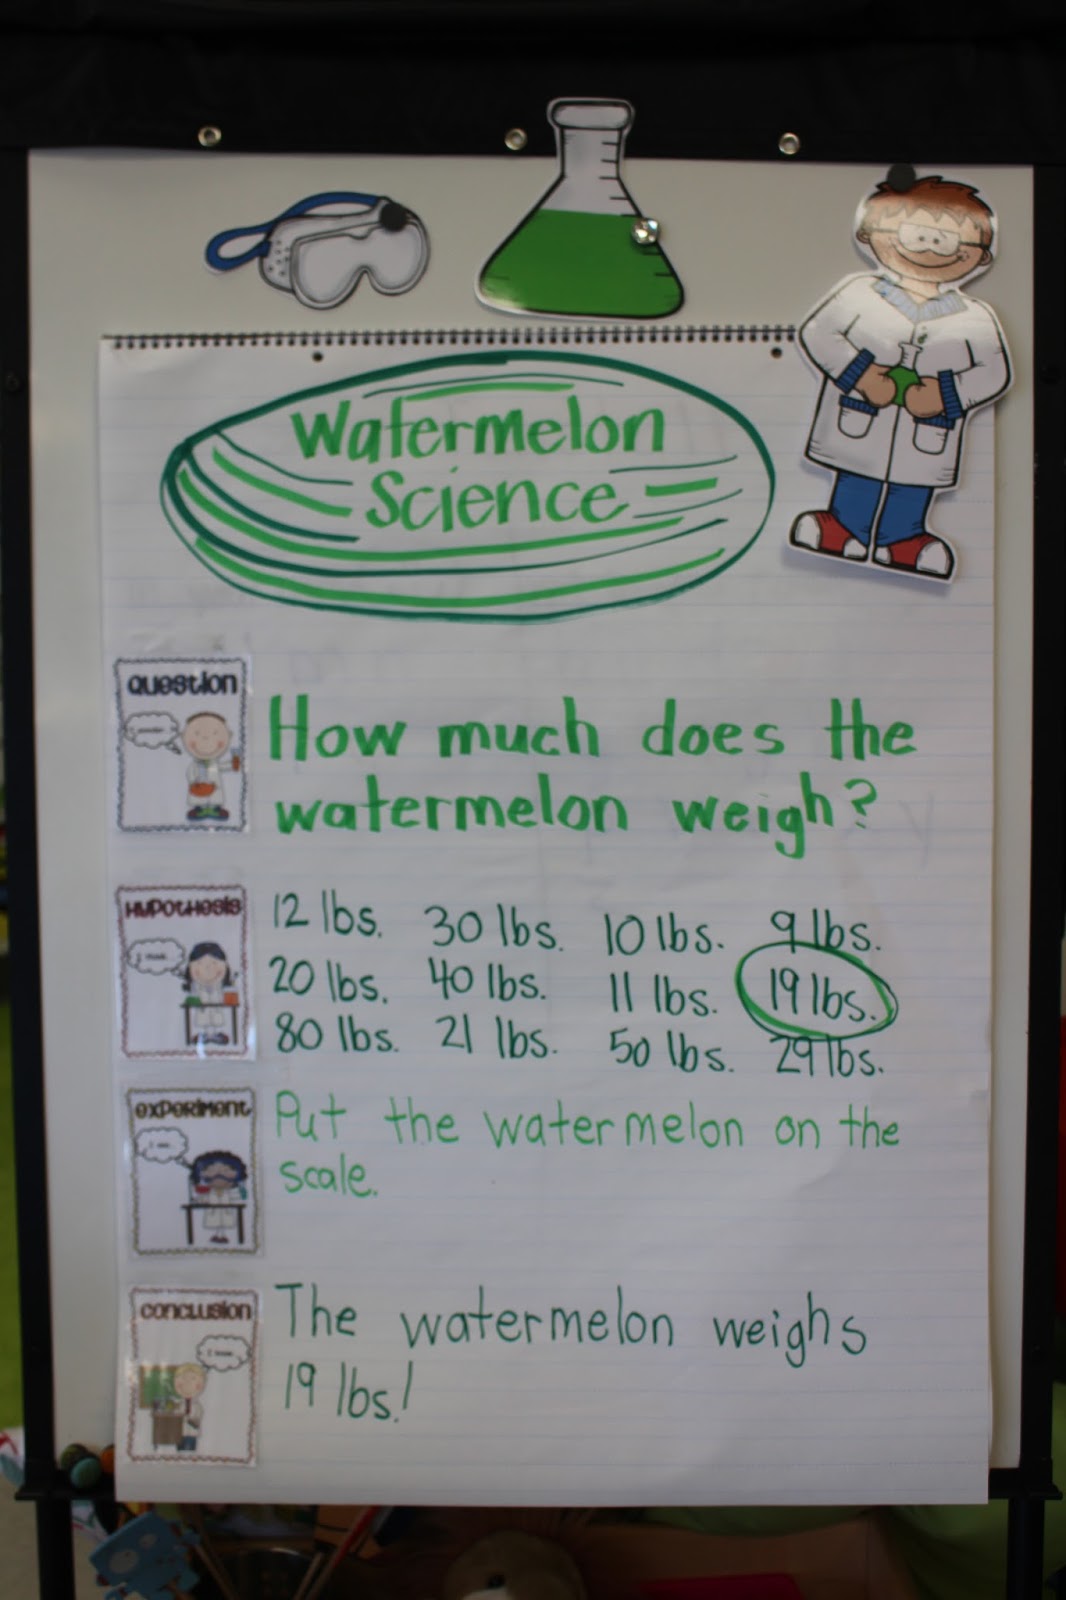 Watermelon
Science
Question
How much does the
watermelon weigh?
Hypothesis
12 lbs. 30 lbs. 10 lbs. 9 lbs.
20 lbs. 40 lbs. 11 lbs. 19 lbs.
80 lbs. 21 lbs. 50 lbs. 29 lbs.
Experiment
Put the watermelon on the
scale.
Conclusion
The watermelon weighs
19 lbs.!